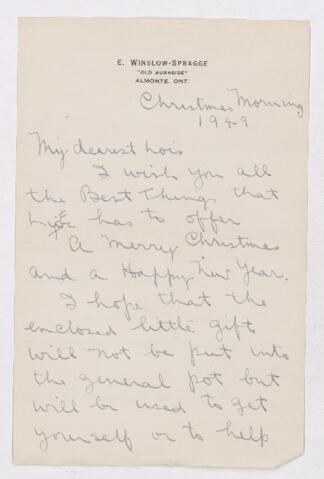 E. WINSLOW-SPRAGGE
"OLD BURNSIDE"
ALMONTE, ONT.
Christmas Morning
1949
My dearest Lois
I wish you all
the Best Things that
Life has to offer
A Merry Christmas
and a Happy New Year.
I hope that the
enclosed little gift
will not be put into
the general pot but
will be used to get
yourself or to help